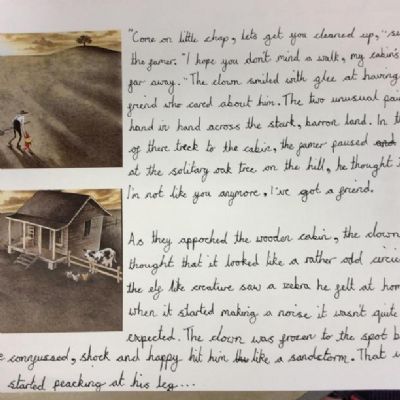 "Come on little chap, let's get you cleaned up,"
the famer. "I hope you don't mind a walk, my cabin's
far away." The clown smiled with glee at having
friend who cared about him. The two unusual
hand in hand across the stark, barron land. In
of there treck to the cabin, the famer paused and
at the solitary oak tree on the hill, he thought
I'm not like you anymore, I've got a friend.
As they appoched the wooden cabin, the clown
thought that it looked like a rather odd
the elf like creature saw a zebra he felt at
when it started making a noise it wasn't quite
expected. The clown was frozen to the spot
conjussed, shock and happy hit him like a sandstorm. That
started peacking at his leg....